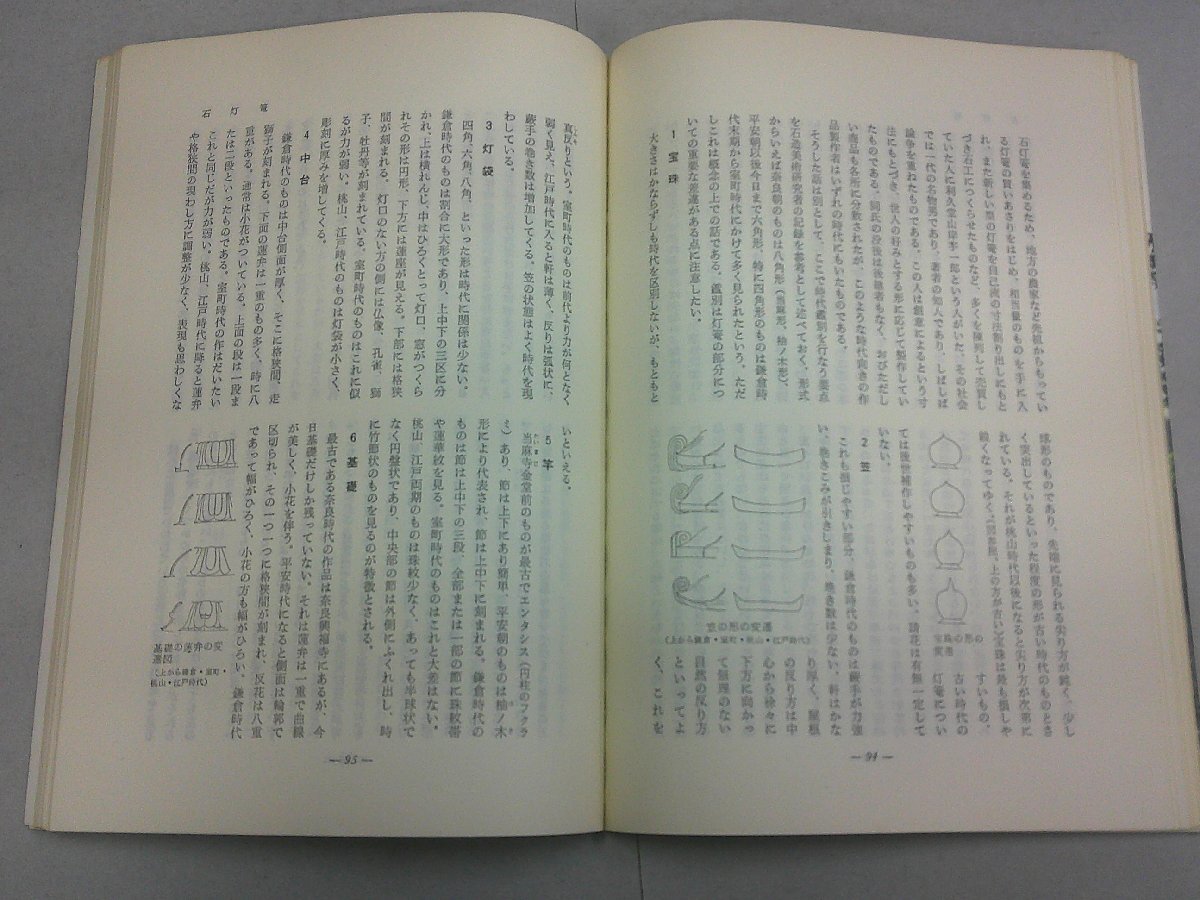 石灯籠を集めるため、地方の農家など先祖からもってい
る灯篭の買いあさりをはじめ、相当量のものを手に入
れ、また新しい型の灯篭を自己流の寸法割り出しにもと
づき石工につくらせたものなど、多くを陳列して売買し
ていた人に利久堂山岸幸一郎という人がいた。その社会
では一代の名物男であり、著者の知人であり、しばしば
論争を重ねたものである。この人は創意によるという寸
法にもとづき、世人の好みとする形に応じて製作してい
たものである。同氏の没後は後継者もなく、おびただし
い商品も各所に分散されたが、このような時代向きの作
品製作者はいずれの時代にもいたものである。
そうした話は別として、ここで時代鑑別を行なう要点
を石造美術研究者の記録を参考として述べておく。形式
からいえば奈良朝のものは八角形（当麻形、柚ノ木形）、
平安朝以後今日まで六角形、特に四角形のものは鎌倉時
代末期から室町時代にかけて多く見られたという。ただ
しこれは概念の上での話である。鑑別は灯篭の部分につ
いての重要な差違がある点に注意したい。
1 宝珠
大きさはかならずしも時代を区別しないが、もともと
球形のものであり、先端に見られる尖り方が鈍く、少し
く突出しているといった程度の形が古い時代のものとさ
れている。それが桃山時代以後になると尖り方が次第に
鋭くなってゆく。
上の方が古い）宝珠は最も損しや
すいもの、
古い時代の
灯篭につい
ては後世補作しやすいものも多い。請花は有無一定して
いない。
2 笠
これも損じやすい部分、鎌倉時代のものは蕨手が力強
い、巻きこみが引きしまり、巻き数は少ない。軒はかな
り厚く、屋根
の反り方は中
心から徐々に
下方に向かっ
て無理のない
自然の反り方
といってよ
く、これを
笠の形の変遷
（上から鎌倉・室町・桃山・江戸時代）
— 94 —
真反りという。室町時代のものは前代より力が何となく
弱く見え、江戸時代に入ると軒は薄く、反りは弧状に、
蕨手の巻き数は増加してくる。笠の状態はよく時代を現
わしている。
3 灯袋
四角、六角、八角、といった形は時代に関係は少ない。
鎌倉時代のものは割合に大形であり、上中下の三区に分
かれ、上は横れんじ、中はひろくとって灯口、窓がつくら
れその形は円形、下方には蓮座が見える。下部には格狭
間が刻まれる。灯口のない方の側には仏像、孔雀、獅
子、牡丹等が刻まれている。室町時代のものはこれに似
るが力が弱い。桃山、江戸時代のものは灯袋が小さく、
彫刻に厚みを増してくる。
4 中台
鎌倉時代のものは中台側面が厚く、そこに格狭間、走
獅子が刻まれる。下面の蓮弁は一重のもの多く、時に八
重がある。通常は小花がついている。上面の段は一段ま
たは二段といったものである。室町時代の作はだいたい
これと同じだが力が弱い、桃山、江戸時代に降ると蓮弁
や格狭間の現わし方に調整が少なく、表現も思わしくな
石灯篭
いといえる。
5 竿
当麻寺金堂前のものが最古でエンタシス（円柱のフクラ
ミ）あり、節は上下にあり簡単、平安朝のものは柚ノ木
形により代表され、節は上中下に刻まれる。鎌倉時代の
ものは節は上中下の三段、全部または一部の節に珠紋帯
や蓮華紋を見る。室町時代のものはこれと大差はない。
桃山、江戸両期のものは珠紋少なく、あっても半球状で
なく円盤状であり、中央部の節は外側にふくれ出し、時
に竹節状のものを見るのが特徴とされる。
6 基礎
最古である奈良時代の作品は奈良興福寺にあるが、今
日基礎だけしか残っていない。それは蓮弁は一重で曲線
が美しく、小花を伴う。平安時代になると側面は輪郭で
区切られ、その一つ一つに格狭間が刻まれ、反花は八重
であって幅がひろく、小花の方も幅がひろい、鎌倉時代
基礎の蓮弁の変
遷図
（上から鎌倉・室町・
桃山・江戸時代）
— 95 —